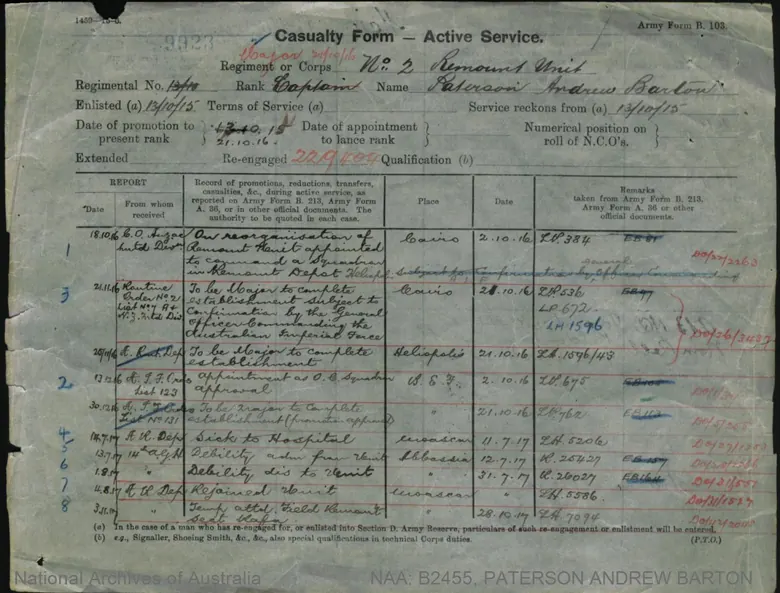 1459—15-6.
Army Form B. 103.
9923
Casualty Form — Active Service.
Major 21/10/16
Regiment or Corps No 2 Remount Unit
Regimental No. Rank Captain Name Paterson Andrew Barton
Enlisted (a) 13/10/15 Terms of Service (a) Service reckons from (a) 13/10/15
Date of promotion to present rank } 13.10.15 21.10.16. Date of appointment to lance rank } Numerical position on roll of N.C.O's. }
Extended Re-engaged Qualification (b)
REPORT
Date
From whom received
Record of promotions, reductions, transfers, casualties, &c., during active service, as reported on Army Form B. 213, Army Form A. 36, or in other official documents. The authority to be quoted in each case.
Place
Date
Remarks taken from Army Form B. 213, Army Form A. 36 or other official documents.
1
18.10.16 C.O. Anzac
On reorganisation of
Remount Unit appointed
to command a Squadron
in Remount Depot
Cairo 2.10.16 LP.384
subject to confirmation by General Officer Commanding
3
21.11.16 Routine
Order No 21
To be Major to complete
establishment subject to
confirmation by the General
Officer Commanding the
Australian Imperial Force
Cairo 21.10.16 LP.536
LP.672
LH 1596
To be Major to complete
establishment
Heliopolis 21.10.16 LH.1596/43
2
13.12.16 A.I.F. Orders
List 123
Appointment as O.C. Squadron
approval
2.10.16 LP.675
30.12.16
List No 131
To be Major to complete
establishment
" 21.10.16 LP.762
4
14.7.17 A. R. Dep
Sick to Hospital
Moascar 11.7.17 LH.5206
5
13.7.17 14th A.G.H.
Debility adm from Unit
Abbassia 12.7.17 K.25427
6
1.8.17 "
Debility dis to Unit
" 31.7.17 K.26027
7
4.8.17 A. R. Dep
Rejoined Unit
Moascar " LH.5586
8
3.11.17 "
Temp attd. Field Remount
28.10.17 LH.7094
(a) In the case of a man who has re-engaged for, or enlisted into Section D. Army Reserve, particulars of such re-engagement or enlistment will be entered.
(b) e.g., Signaller, Shoeing Smith, &c., &c., also special qualifications in technical Corps duties.
(P.T.O.)
National Archives of Australia
NAA: B2455, PATERSON ANDREW BARTON